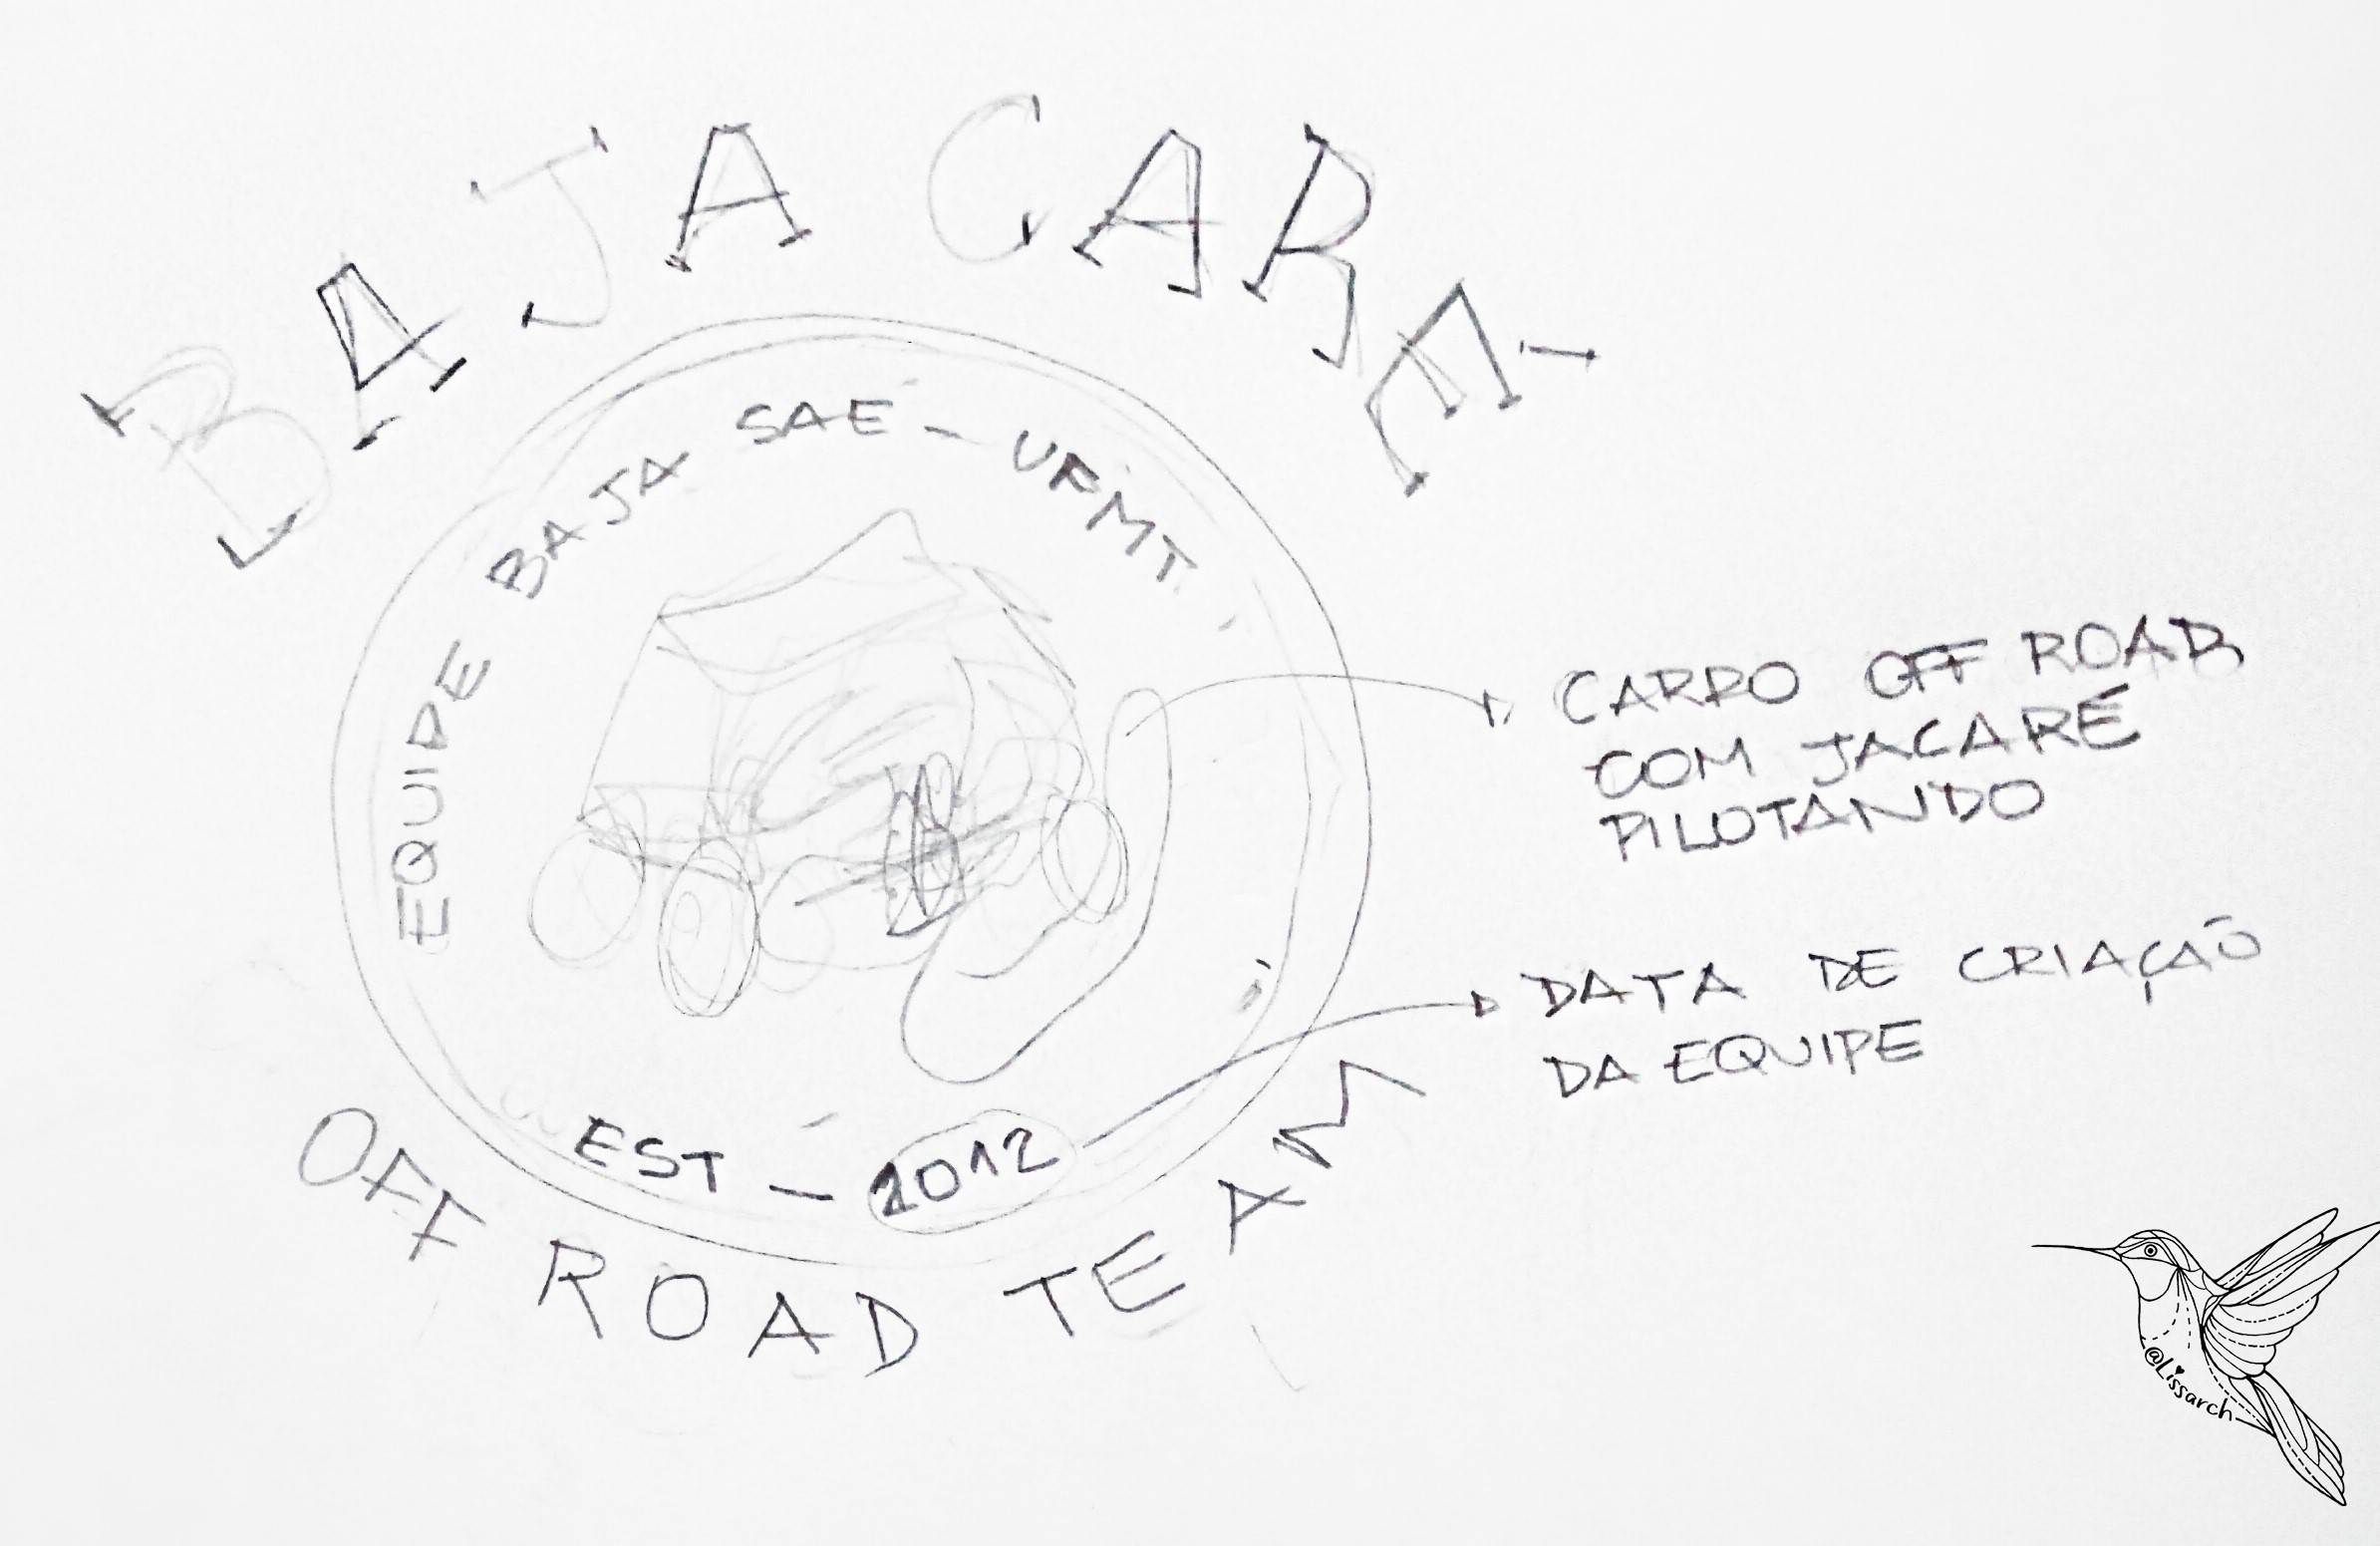 BAJACARÉ
EQUIPE BAJA SAE - UFMT
EST - 2012
OFF ROAD TEAM
CARRO OFF ROAD
COM JACARÉ
PILOTANDO
DATA DE CRIAÇÃO
DA EQUIPE
@Lissarch